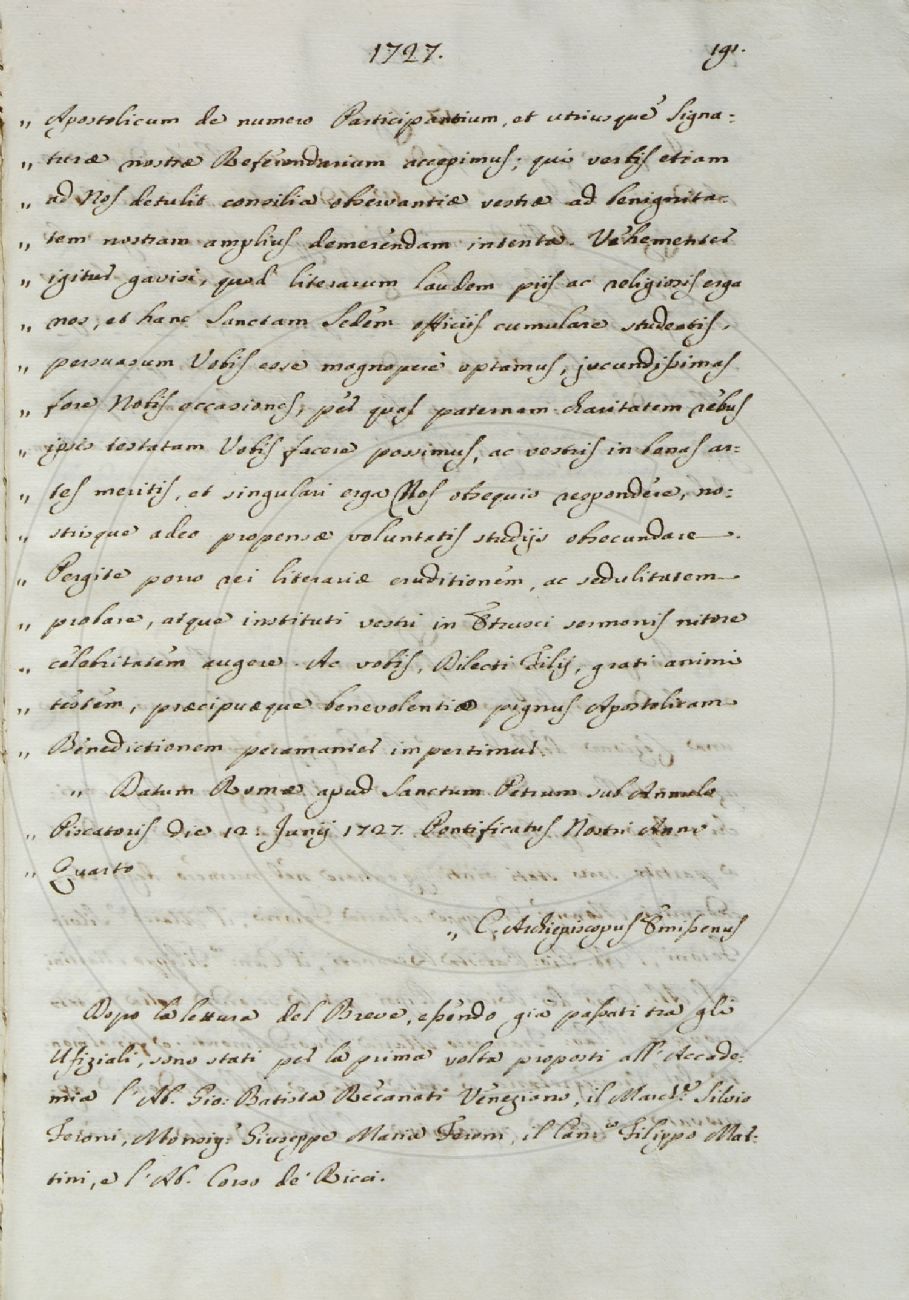 1727. 191.
„ Apostolicum de numero Participantium, et utriusque Signa=
„ turæ nostræ Referendarium accepimus; qui vestis etiam
„ ad Nos detulit consilia observantiæ vestræ ad benignita=
„ tem nostram amplius demerendam intenta. Vehementer
„ igitur gavisi, quod literarum laudem piis ac religiosis erga
„ nos, et hanc Sanctam Sedem officiis cumulare studeatis,
„ persuasum Vobis esse magnopere optamus, jucundissimas
„ fore Nobis occasiones, per quas paternam charitatem rebus
„ ipsis testatam Vobis facere possimus, ac vestris in bonas ar=
„ tes meritis, et singulari erga Nos obsequio respondere, no=
„ strisque adeo propensæ voluntatis studijs obsecundare.
„ Pergite porro rei literariæ eruditionem, ac sedulitatem
„ probare, atque instituti vestri in Etrusci sermonis nitore
„ celebritatem augere. Ac vobis, Dilecti Filij, grati animi
„ testem, præcipuæque benevolentiæ pignus Apostolicam
„ Benedictionem peramanter impertimur.
„ Datum Romæ apud Sanctum Petrum sub Annulo
„ Piscatoris die 12. Junij 1727. Pontificatus Nostri Anno
„ Quarto
„ C. Archiepiscopus Emissenus
Dopo la lettura del Breve, essendo gia passati tra gli
Ufiziali, sono stati per la prima volta proposti all'Accade=
mia l'Ab. Gio: Batista Recanati Veneziano, il March.e Silvio
Feroni, Monsig.r Giuseppe Maria Feroni, il Can.co Filippo Mar=
tini, e l'Ab. Corso de' Ricci.